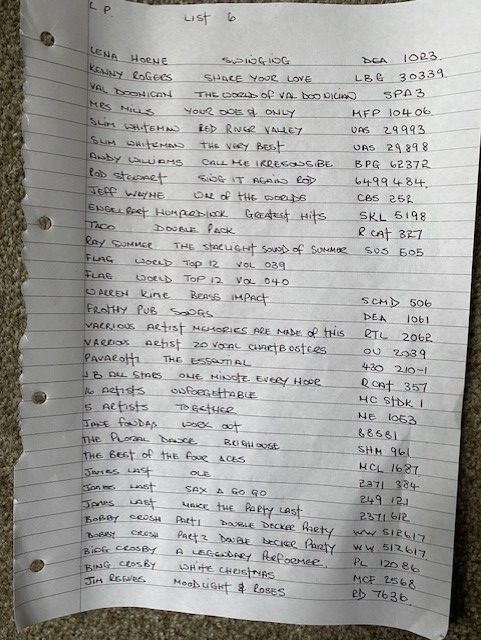 L P. LIST 6
LENA HORNE SWINGING DEA 1023.
KENNY ROGERS SHARE YOUR LOVE LBG 30339.
VAL DOONICAN THE WORLD OF VAL DOONICIAN SPA3
MRS MILLS YOUR ONE & ONLY MFP 10406
SLIM WHITEMAN RED RIVER VALLEY UAS 29993
SLIM WHITEMAN THE VERY BEST UAS 29898
ANDY WILLIAMS CALL ME IRRESONSIBE BPG 62372
ROD STEWART SING IT AGAIN ROD 6499484.
JEFF WAYNE WAR OF THE WORLDS CBS 252
ENGELBERT HUMPARDINCK GREATEST HITS SKL 5198
TACO DOUBLE PACK R CAT 327
RAY SUMMER THE STARLIGHT SOUND OF SUMMER SUS 505
FLAG WORLD TOP 12 VOL 039
FLAG WORLD TOP 12 VOL 040
WARREN KIME BRASS IMPACT SCMD 506
FROTHY PUB SONGS DEA 1061
VARRIOUS ARTIST MEMORIES ARE MADE OF THIS RTL 2062
VARRIOUS ARTIST 20 VOCAL CHARTBUSTERS OU 2039
PAVAROTTI THE ESSENTIAL 430 210-1
J B ALL STARS ONE MINUTE EVERY HOUR R CAT 357
16 ARTISTS UNFORGETTABLE MC STDK 1
5 ARTISTS TOGETHER NE 1053
JANE FONDAS WORK OUT 88581
THE FLORAL DANCE BRIGHOUSE SHM 961
THE BEST OF THE FOUR ACES MCL 1687
JAMES LAST OLE 2371 384
JAMES LAST SAX A GO GO 249 121
JAMES LAST MAKE THE PARTY LAST 2371 612
BOBBY CRUSH PART1 DOUBLE DECKER PARTY WW 512617
BOBBY CRUSH PART2 DOUBLE DECKER PARTY WW 512617
BING CROSBY A LEGENDARY PERFORMER. PL 12086
BING CROSBY WHITE CHRISTMAS MCF 2568
JIM REEVES MOODLIGHT & ROSES RD 7636.